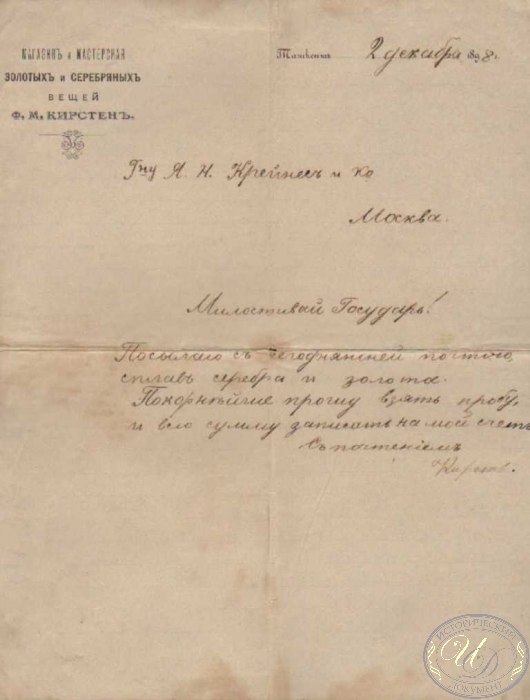 МАГАЗИНЪ и МАСТЕРСКАЯ
ЗОЛОТЫХЪ и СЕРЕБРЯНЫХЪ
ВЕЩЕЙ
Ф. М. КИРСТЕНЪ.
Ташкентъ 2 декабря 1898 г.
Гну Я. Н. Крейнесъ и Ко
Москва.
Милостивай Государь!
Посылаю съ сегодняшней почтою,
сплавъ серебра и золота.
Покорнѣйше прошу взять пробу,
и всю сумму записать на мой счетъ
Съ почтеніемъ
ИСТОРИЧЕСКИЙ
ИД
ДОКУМЕНТ